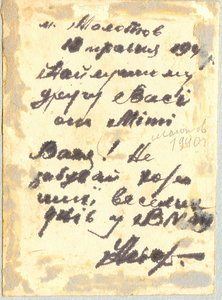 м. Молотов
18 травня 194
Найкращому
другу Васі
от Міті
Молотов
1940
Вася! Не
забувай хоро
ших, веселих
днів у